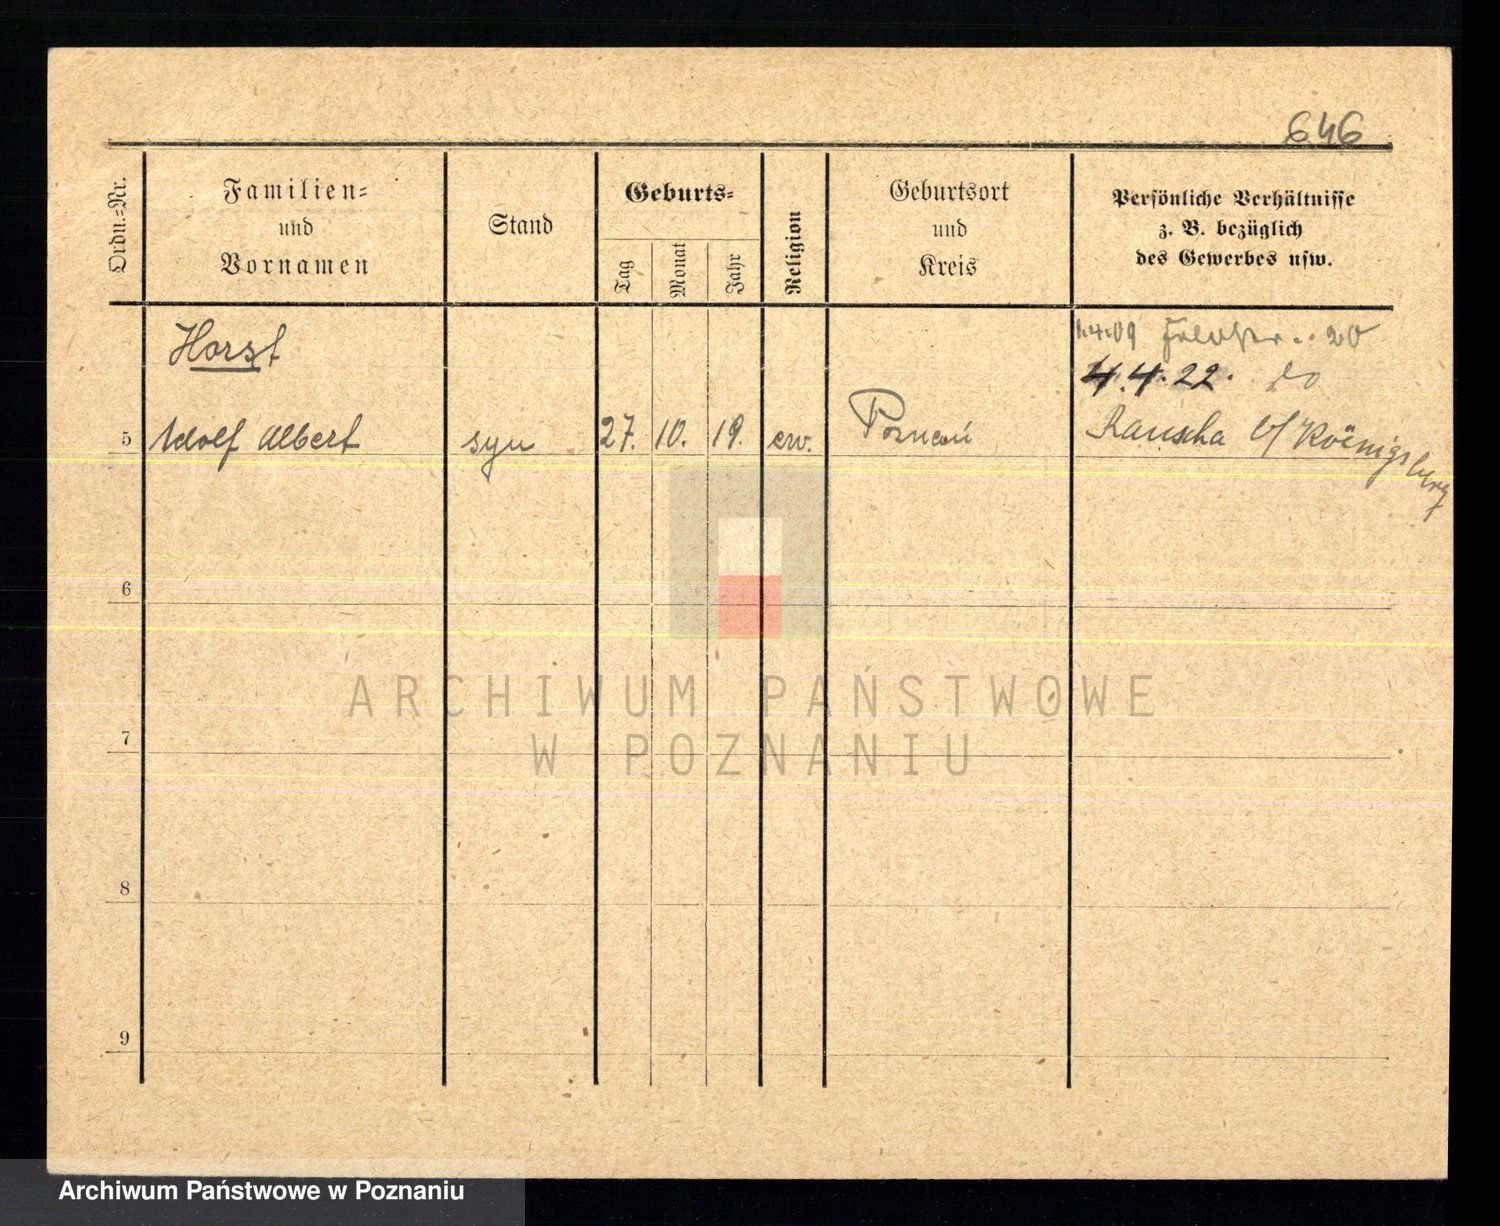 646
Ordn.=Nr.
Familien=
und
Vornamen
Stand
Geburts=
Tag
Monat
Jahr
Religion
Geburtsort
und
Kreis
Persönliche Verhältnisse
z. B. bezüglich
des Gewerbes usw.
Horst
1.4.09 20
4.4.22. do
5 Adolf Albert syn 27. 10. 19. ew. Poznań Rauscha b/Koenigsberg
6
7
8
9
ARCHIWUM PAŃSTWOWE
W POZNANIU
Archiwum Państwowe w Poznaniu